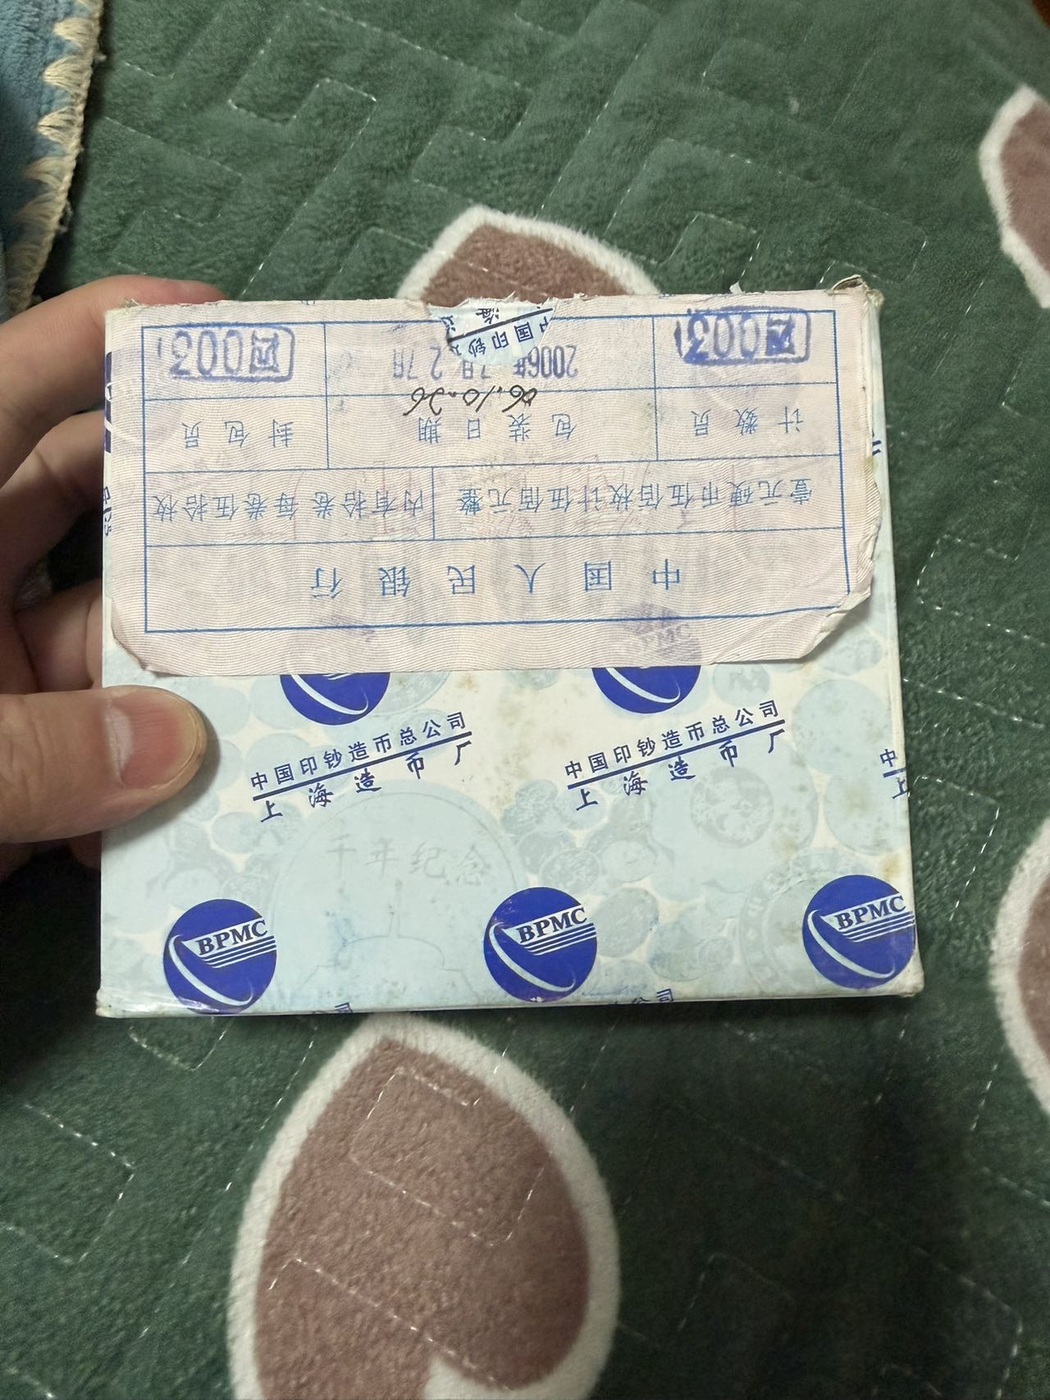 中国人民银行
壹元硬币伍佰枚计伍佰元整 内有拾卷 每卷伍拾枚
计数员 包装日期 封包员
06.10.26
2006年
中国印钞
海
中国印钞造币总公司
上海造币厂
中国印钞造币总公司
上海造币厂
中
上
千年纪念
BPMC
BPMC
BPMC
公司
公司